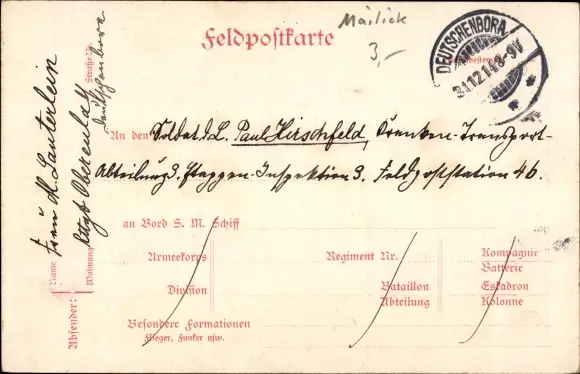 Mäilick
3,-
Feldpostkarte
DEUTSCHENBORA
31.12.14. 8-9V
An den Soldat d. L. Paul Hirschfeld, Kranken-Transport-
Abteilung 3. Etappen-Inspektion 3. Feldpoststation 46.
an Bord S. M. Schiff
Armeekorps
Regiment Nr.
Kompagnie
Batterie
Division
Bataillon
Eskadron
Abteilung
Kolonne
Besondere Formationen
Flieger, Funker usw.
Absender:
Name Frau M. Lauterlein
Wohnung Rttgt Obereula
Straße Nr.
Deutschenbora